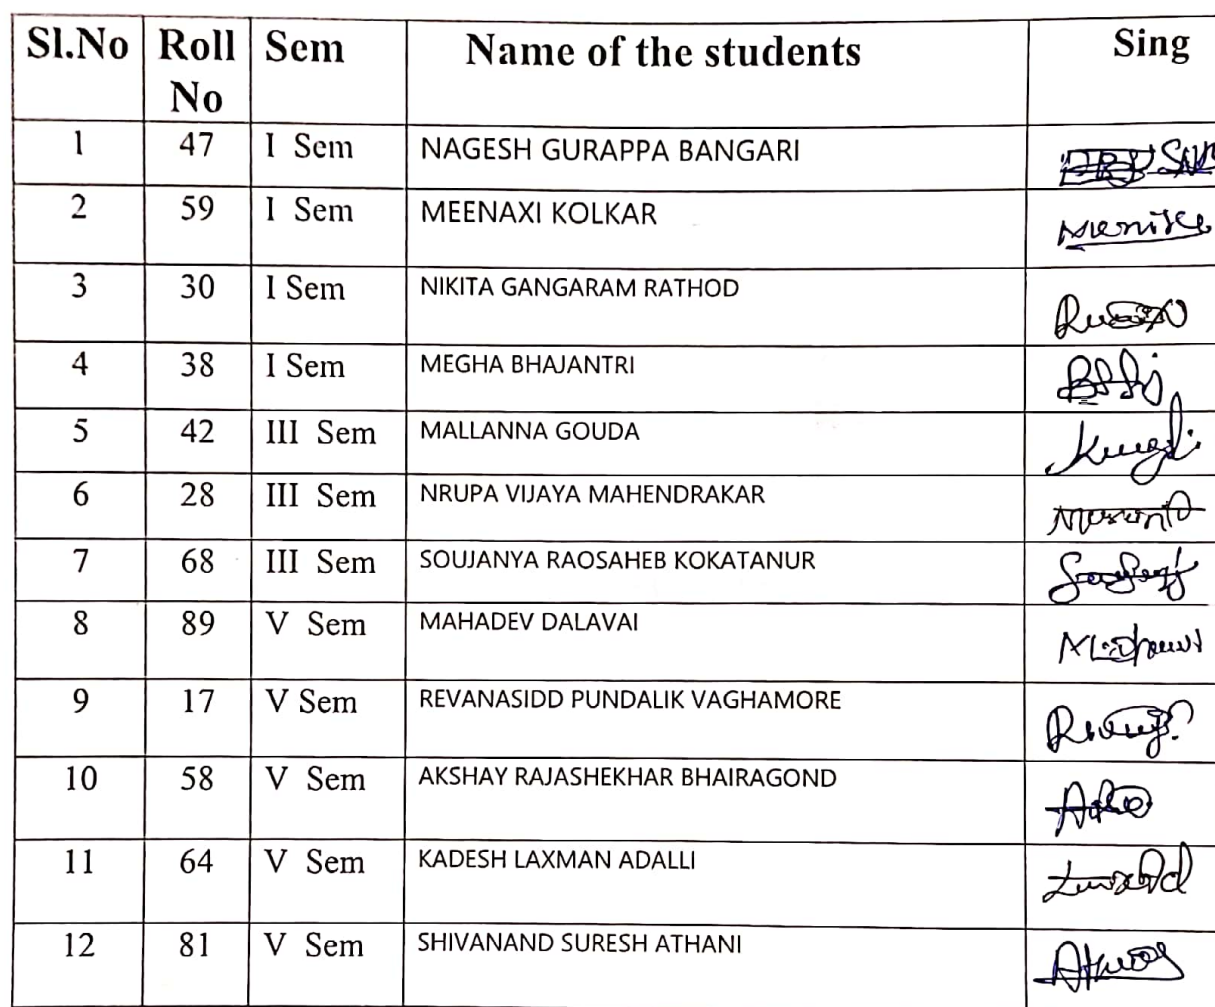 Sl.No Roll No Sem Name of the students Sing
1 47 I Sem NAGESH GURAPPA BANGARI
2 59 I Sem MEENAXI KOLKAR
3 30 I Sem NIKITA GANGARAM RATHOD
4 38 I Sem MEGHA BHAJANTRI
5 42 III Sem MALLANNA GOUDA
6 28 III Sem NRUPA VIJAYA MAHENDRAKAR
7 68 III Sem SOUJANYA RAOSAHEB KOKATANUR
8 89 V Sem MAHADEV DALAVAI
9 17 V Sem REVANASIDD PUNDALIK VAGHAMORE
10 58 V Sem AKSHAY RAJASHEKHAR BHAIRAGOND
11 64 V Sem KADESH LAXMAN ADALLI
12 81 V Sem SHIVANAND SURESH ATHANI